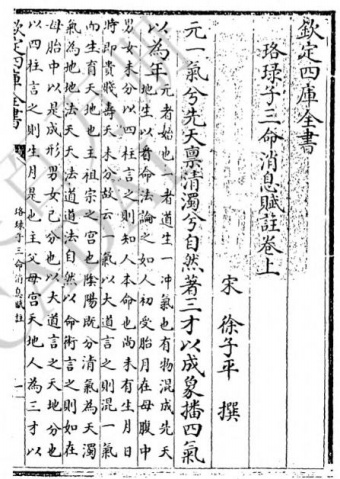 欽定四庫全書
珞琭子三命消息賦註卷上
宋 徐子平 撰
元一氣兮先天稟清濁兮自然著三才以成象播四氣
以為年
元者始也一者道生一冲氣也有物混成先天
地生以
命法論之如人初受胎月在母腹中
男女未分以四柱言之則知人本命也尚未有生月日
時即貴賤壽夭未分故云
氣以大道言之則混一氣
而生育天地也主祖宗之宫也陰陽既分清氣為天濁
氣為地地法天天法道道法自然以命術言之則如在
母胎中以是成形男女已分也以大道言之天地分也
以四柱言之則生月是也主父母宫天地人為三才以
欽定四庫全書
珞琭子三命消息賦註
一